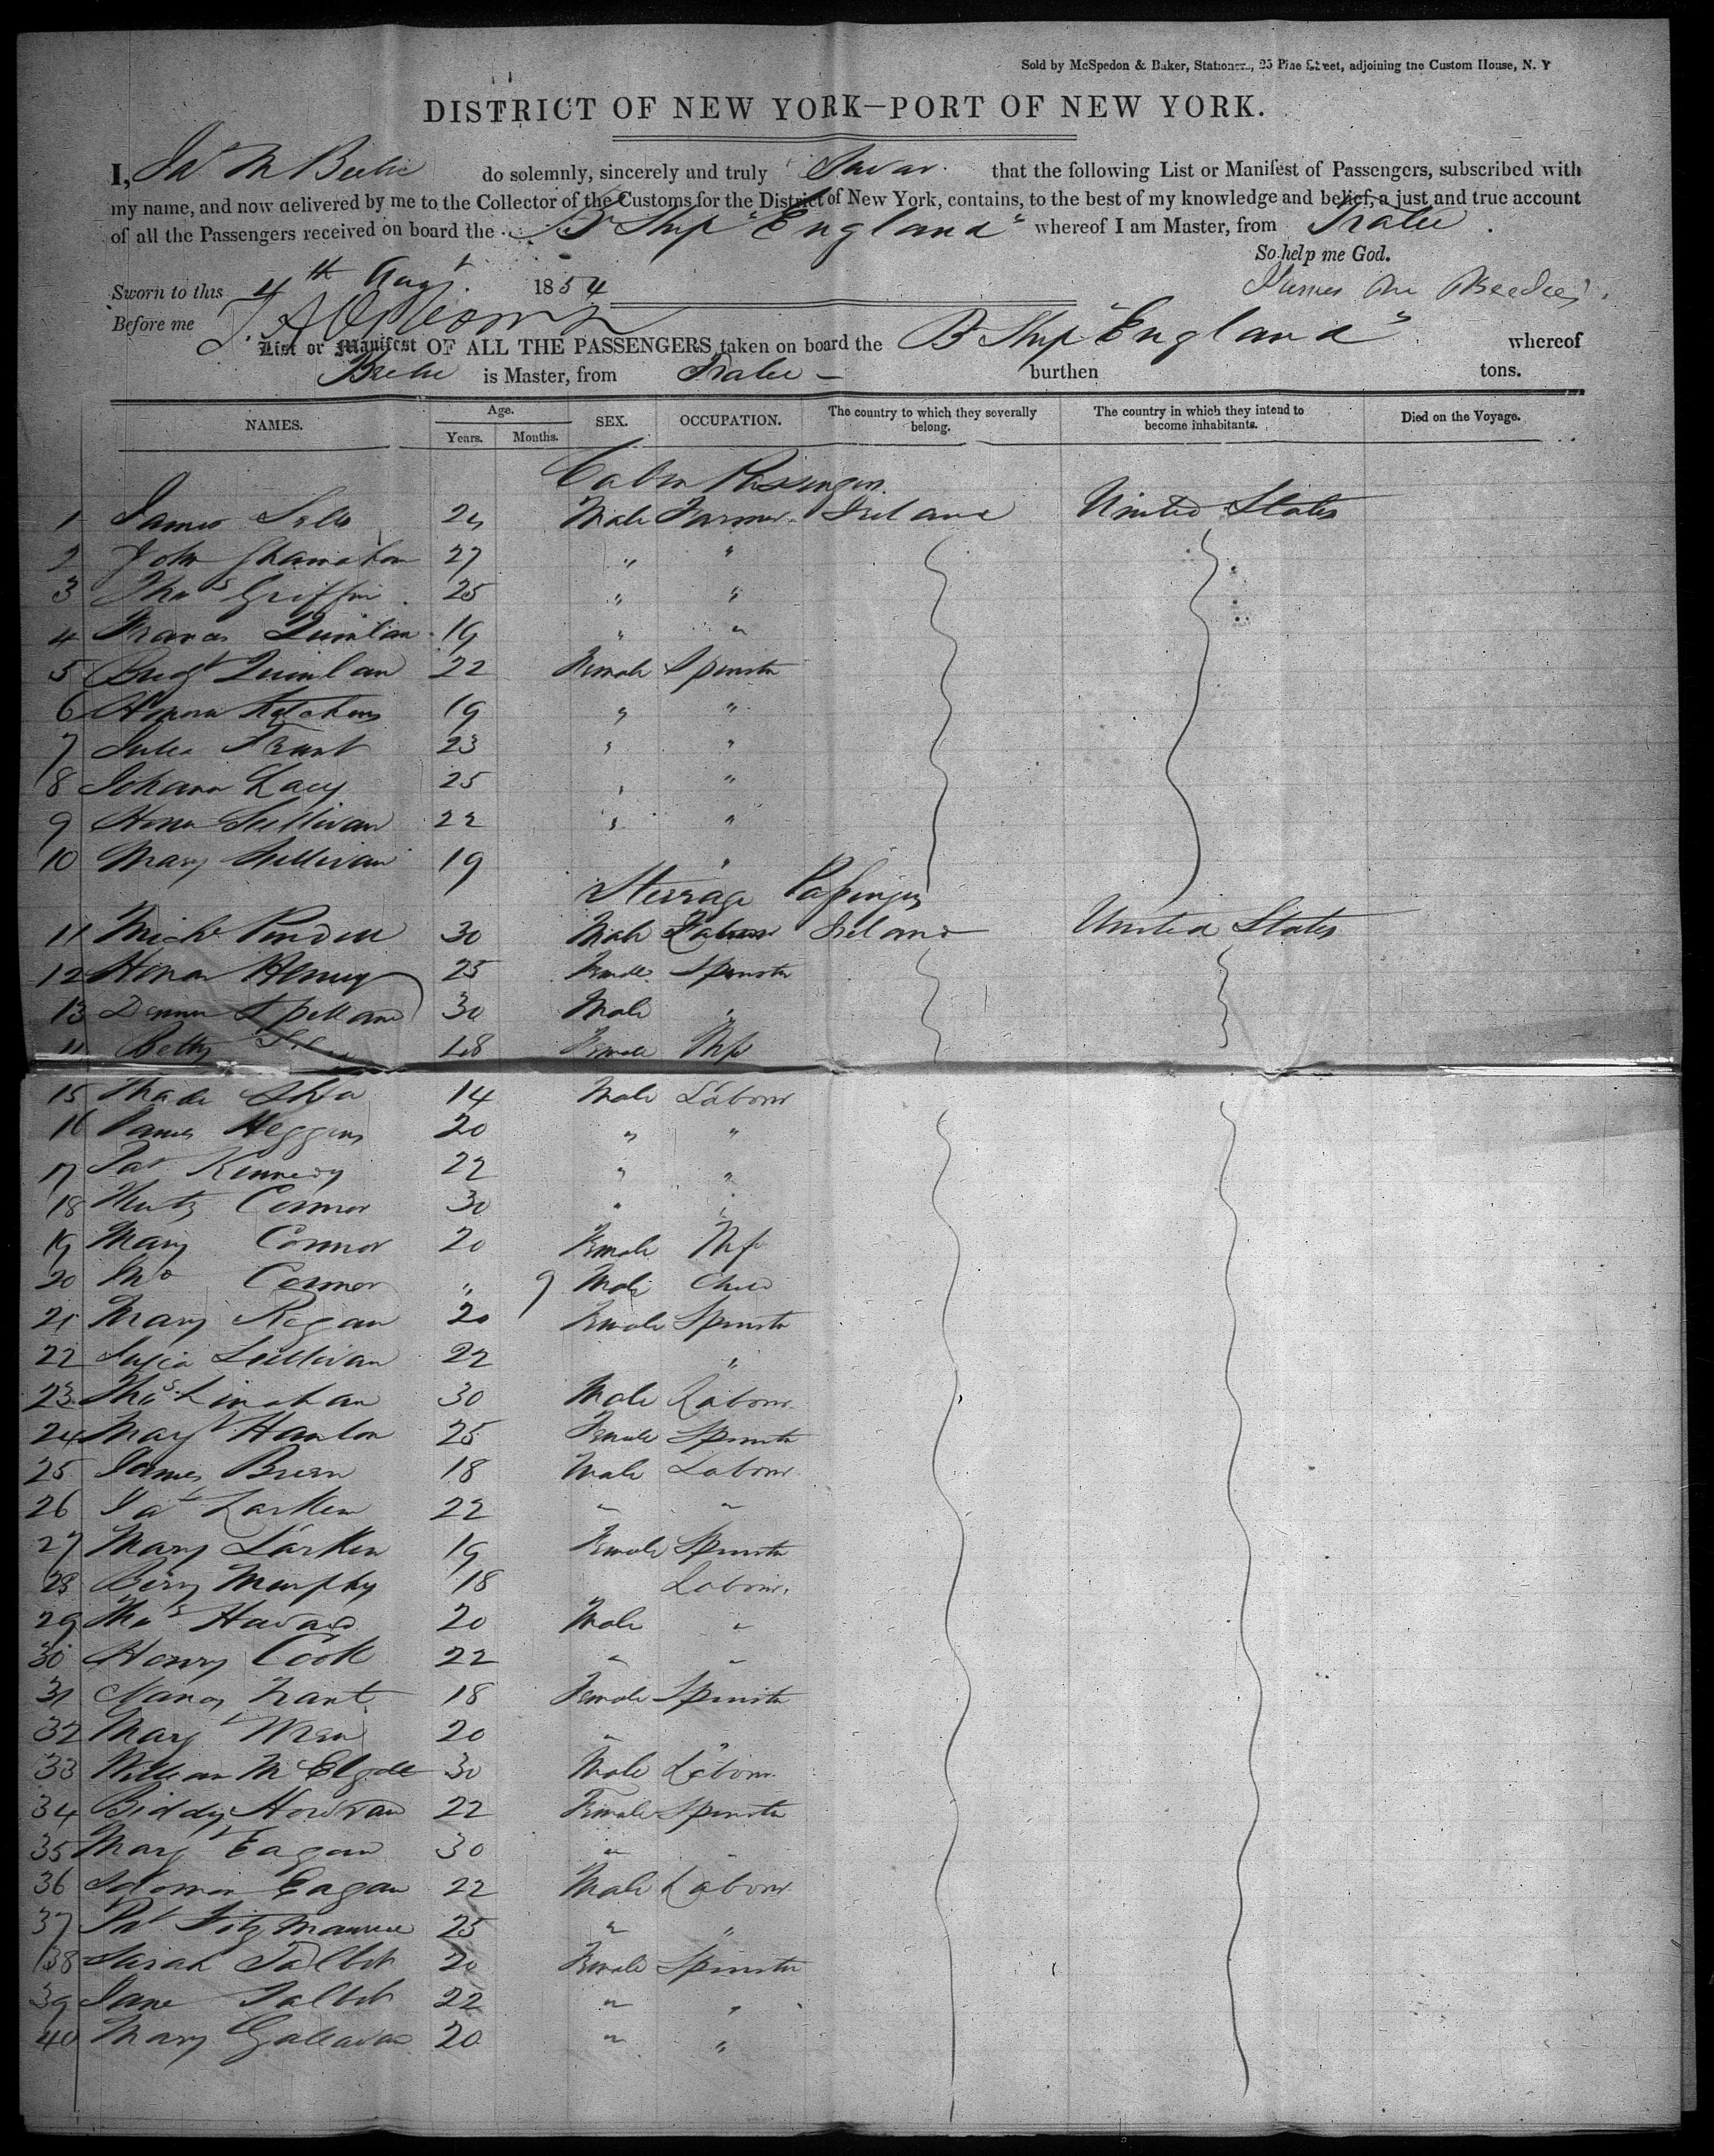 Sold by McSpedon & Baker, Stationers, 25 Pine Street, adjoining the Custom House, N. Y
DISTRICT OF NEW YORK—PORT OF NEW YORK.
I, do solemnly, sincerely and truly Swear that the following List or Manifest of Passengers, subscribed with
my name, and now delivered by me to the Collector of the Customs for the District of New York, contains, to the best of my knowledge and belief, a just and true account
of all the Passengers received on board the B Ship "England" whereof I am Master, from Tralee.
So help me God.
Sworn to this 4th Augt. 1854 James
Before me
List or Manifest OF ALL THE PASSENGERS taken on board the B Ship "England" whereof
is Master, from Tralee — burthen tons.
NAMES. Age. Years. Months. SEX. OCCUPATION. The country to which they severally belong. The country in which they intend to become inhabitants. Died on the Voyage.
Cabin Passengers
1 James 24 Male Farmer Ireland United States
2 John 27 " "
3 Thos Griffin 25 " "
4 Francis Quinlan 19 " "
5 Bridgt Quinlan 22 Female Spinster
6 Honora 19 " "
7 Julia Trant 23 " "
8 Johana Lacy 25 " "
9 Hona Sullivan 22 " "
10 Mary Sullivan 19 "
Steerage Passengers
11 Michl 30 Male Labour Ireland United States
12 Honor 25 Female Spinster
13 Dennis Spellane 30 Male "
Betty 28 Female Wife
15 Thade Shea 14 Male Labour
16 James Heggins 20 " "
17 Pat Kennedy 22 " "
18 Connor 30 " "
19 Mary Connor 20 Female Wife
20 Connor " 9 Male Child
21 Mary Regan 20 Female Spinster
22 Sullivan 22 "
23 Thos Linahan 30 Male Labour
24 Margt Hanlon 25 Female Spinster
25 James Brien 18 Male Labour
26 Larken 22 " "
27 Mary Larken 19 Female Spinster
28 Murphy 18 Labour
29 Thos Howard 20 Male "
30 Henry Cook 22 " "
31 Nancy 18 Female Spinster
32 Margt Wren 20 "
33 William 30 Male Labour
34 Biddy 22 Female Spinster
35 Margt Eagan 30 "
36 Eagan 22 Male Labour
37 Pat Fitzmaurice 25 " "
38 Sarah Talbot 20 Female Spinster
39 Jane Talbot 22 " "
40 Mary Gallavan 20 " "